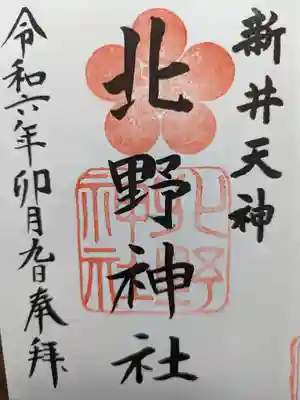 新井天神
北野神社
令和六年卯月九日奉拝
北野
神社